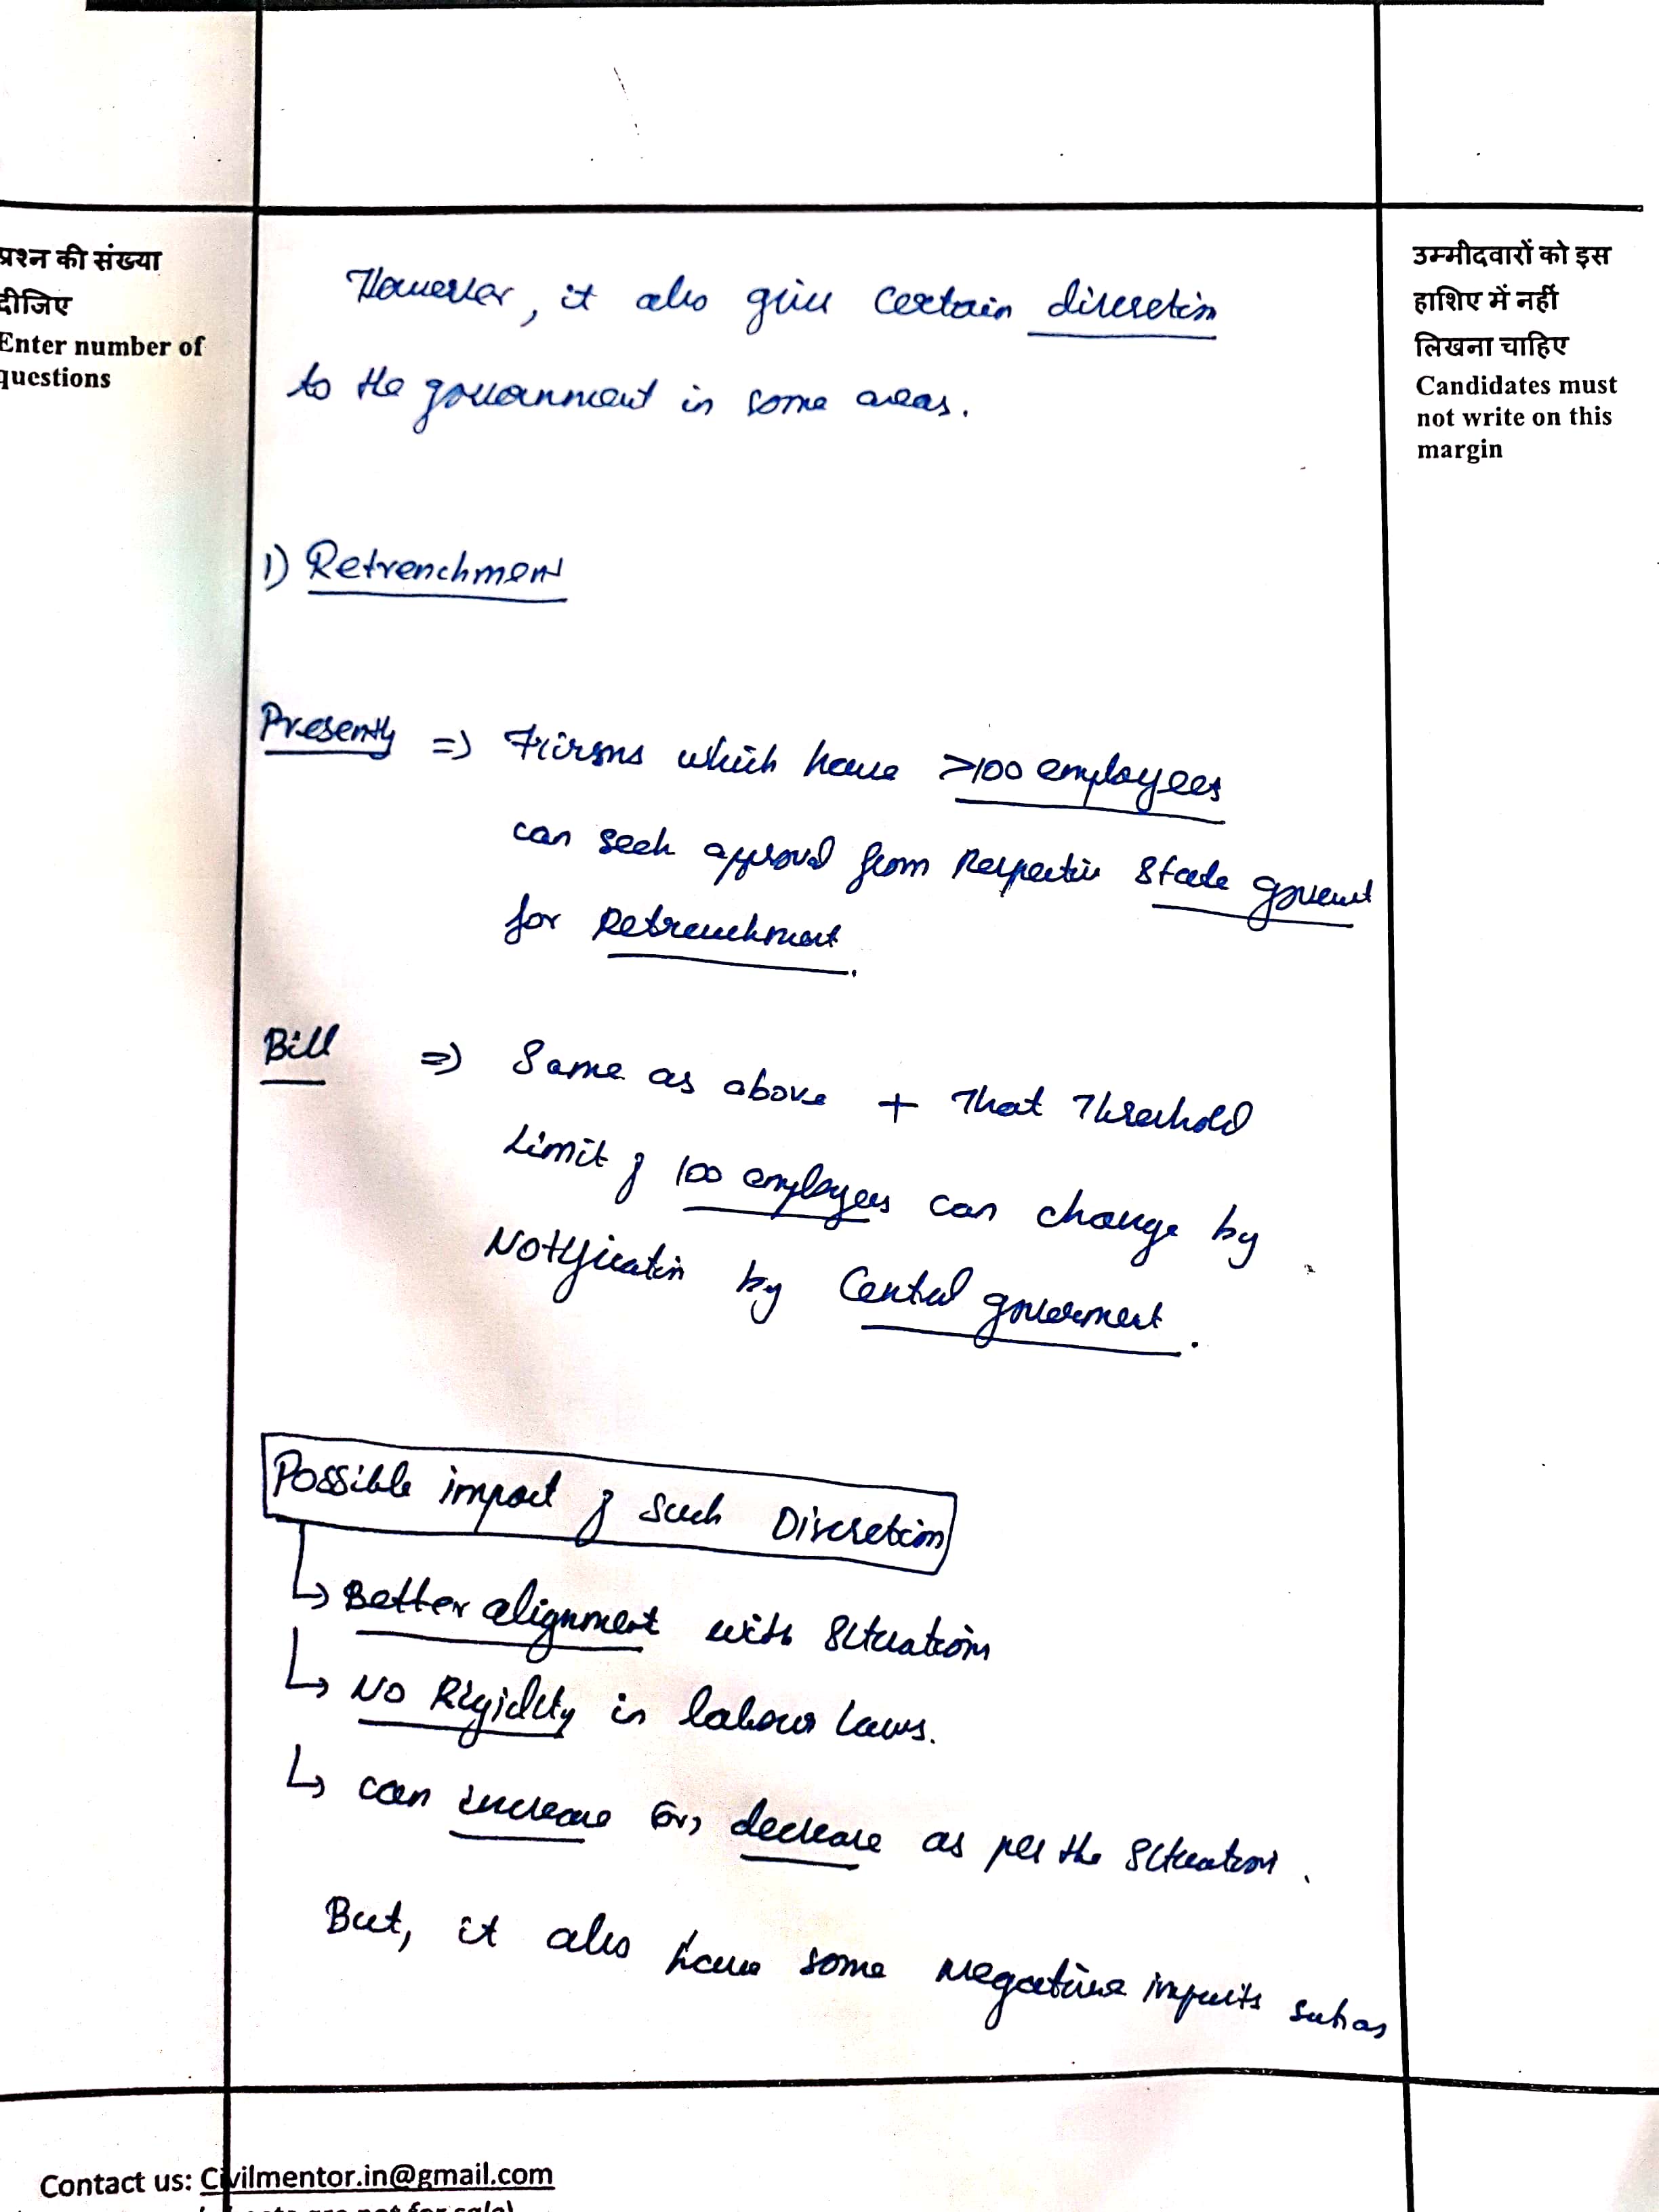 प्रश्न की संख्या
दीजिए
Enter number of
questions
However, it also give certain discretion
to the government in some areas.
1) Retrenchment
Presently => Firsms which have >100 employees
can seek approval from Respective State government
for Retrenchment.
Bill => Same as above + That Threshold
Limit of 100 employees can change by
Notification by Central government.
Possible impact of such Discretion
↳ Better alignment with Situation
↳ No Rigidity in labour laws.
↳ can increase or, decrease as per the Situation.
But, it also have some negative impacts such as
उम्मीदवारों को इस
हाशिए में नहीं
लिखना चाहिए
Candidates must
not write on this
margin
Contact us: Civilmentor.in@gmail.com